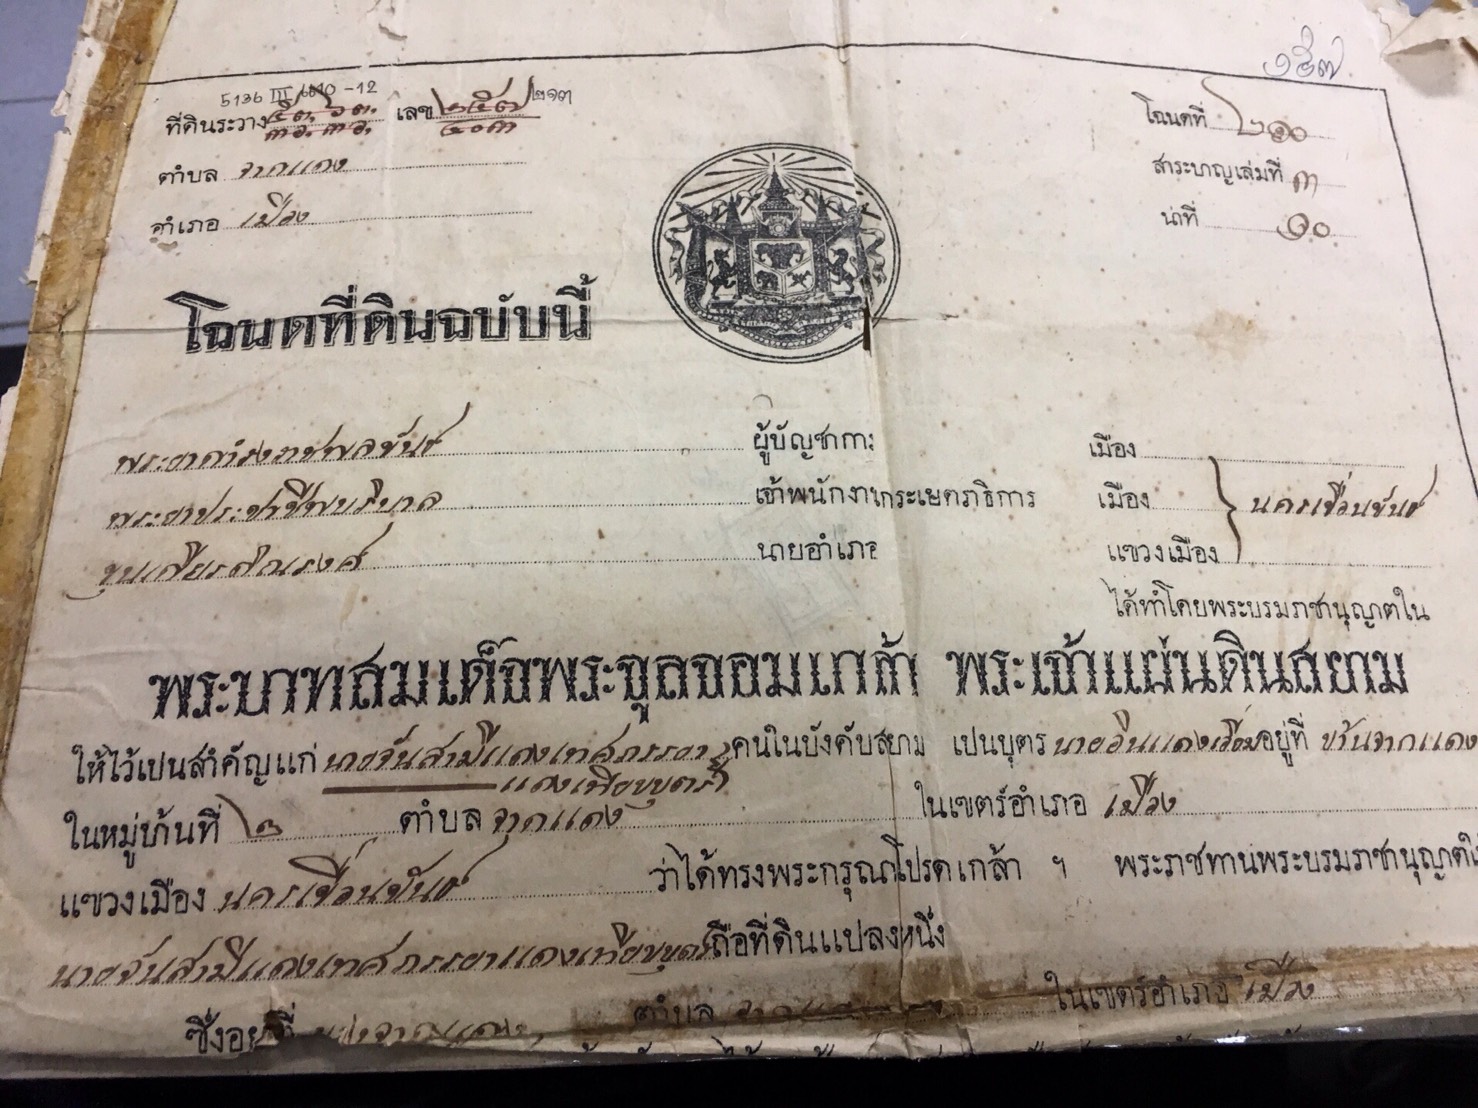 ๑๕๗
5136 III 6610 -12
ที่ดินระวาง ๕ต. ๖ต. เลข ๒๕๗ ๒๑๓
๓อ. ๓อ. ๔๐๓
โฉนดที่ ๒๑๐
ตำบล จากแดง
สาระบาญเล่มที่ ๓
อำเภอ เมือง
น่าที่ ๑๐
โฉนดที่ดินฉบับนี้
พระยาดำรงราชพลขันธ์ ผู้บัญชาการ เมือง
พระยาประชาชีพบริบาล เจ้าพนักงานกระเษตราธิการ เมือง นครเขื่อนขันธ์
ขุนเสียรสิณรงค์ นายอำเภอ แขวงเมือง
ได้ทำโดยพระบรมราชานุญาตใน
พระบาทสมเด็จพระจุลจอมเกล้า พระเจ้าแผ่นดินสยาม
ให้ไว้เปนสำคัญแก่ นายจันสามีแดงเทศภรรยา คนในบังคับสยาม เปนบุตร นายอินแดงเรือม อยู่ที่ บ้านจากแดง
แดงเทียบบุตร์
ในหมู่บ้านที่ ๒ ตำบล จากแดง ในเขตร์อำเภอ เมือง
แขวงเมือง นครเขื่อนขันธ์ ว่าได้ทรงพระกรุณโปรดเกล้า ฯ พระราชทานพระบรมราชานุญาตให้
นายจันสามีแดงเทศภรรยาแดงเทียบบุตร์ ถือที่ดินแปลงหนึ่ง
ซึ่งอยู่ที่ บางจากแดง ตำบล จากแดง ในเขตร์อำเภอ เมือง